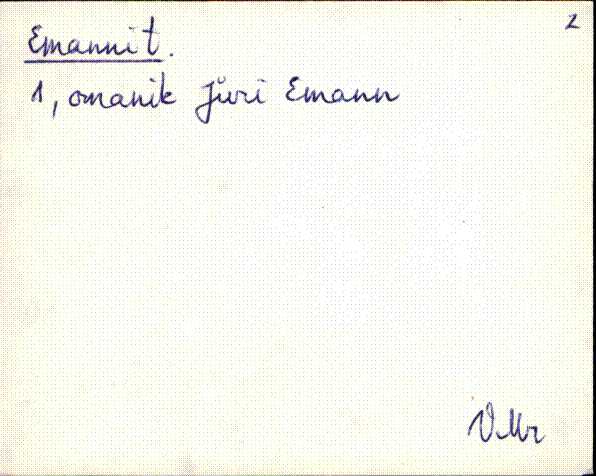 2
Emannit.
1, omanik Jüri Emann
VMr